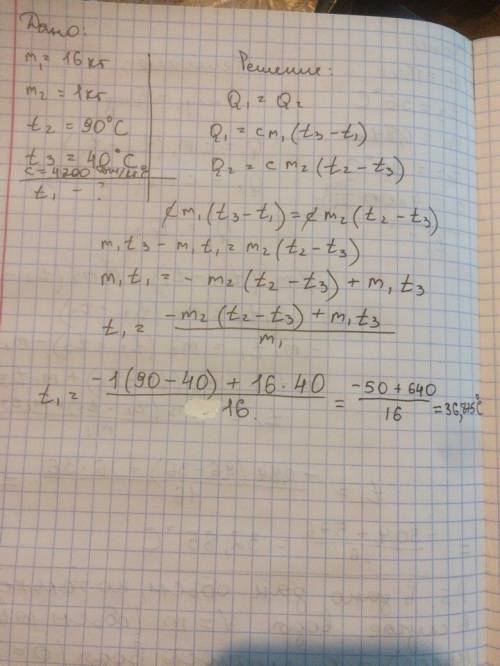 Дано:
m₁ = 16 кг
m₂ = 1 кг
t₂ = 90°C
t₃ = 40°C
c = 4200
t₁ - ?
Решение:
Q₁ = Q₂
Q₁ = c m₁ (t₃ - t₁)
Q₂ = c m₂ (t₂ - t₃)
c m₁ (t₃ - t₁) = c m₂ (t₂ - t₃)
m₁ t₃ - m₁ t₁ = m₂ (t₂ - t₃)
m₁ t₁ = - m₂ (t₂ - t₃) + m₁ t₃
t₁ = (-m₂ (t₂ - t₃) + m₁ t₃) / m₁
t₁ = (-1 (90 - 40) + 16 · 40) / 16 = (-50 + 640) / 16 = 36,875°C